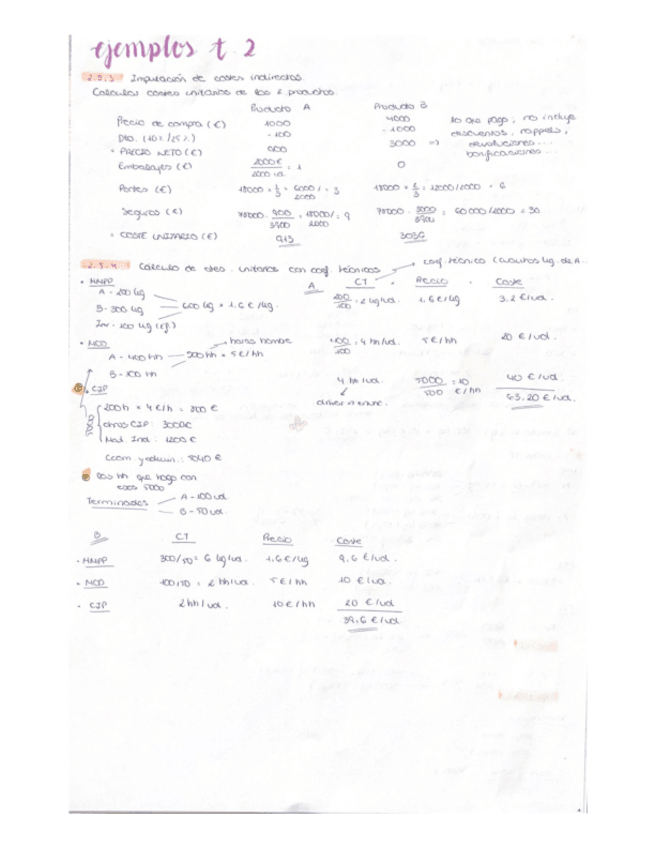 ejemplos t. 2
2.5.3 Imputación de costes indirectos
Calcular costes unitarios de los 2 productos.
Producto A Producto B
Precio de compra (€) 1000 4000 lo que pago, no incluye
Dto. (10% / 25%) - 100 - 1000 descuentos, rappels,
= PRECIO NETO (€) 900 3000 => devoluciones...
bonificaciones...
Embalajes (€) 2000€ / 2000 ud. = 1 0
Portes (€) 18000 · 1/3 = 6000 / 2000 = 3 18000 · 2/3 = 12000/2000 = 6
Seguros (€) 78000 · 900/3900 = 18000/2000 = 9 78000 · 3000/3900 = 60000/2000 = 30
= COSTE UNITARIO (€) 913 3036
2.5.4. Cálculo de ctes. unitarios con coef. técnicos → coef. técnico (cuantos kg. de A...
· MMPP A CT · Precio = Coste
A - 200 kg 200/100 = 2 kg/ud. 1,6 €/kg 3,2 €/ud.
B - 300 kg 600 kg × 1,6 €/kg.
Inv - 100 kg
· MOD → horas hombre 400/100 = 4 hh/ud. 5 €/hh 20 €/ud.
A - 400 hh 500 hh × 5 €/hh
B - 100 hh
· CIP 4 hh/ud. 5000/500 = 10 €/hh 40 €/ud.
200 h × 4 €/h = 800 € 63,20 €/ud.
5000 otros CIP: 3000€
Mod. Ind: 1200 €
Com. y admin.: 5040 €
los hh que hago con
esos 5000
Terminados A - 100 ud.
B - 50 ud.
B CT Precio Coste
· MMPP 300/50 = 6 kg/ud. 1,6 €/kg 9,6 €/ud.
· MOD 100/50 = 2 hh/ud. 5 €/hh 10 €/ud.
· CIP 2 hh/ud. 10 €/hh 20 €/ud
39,6 €/ud.